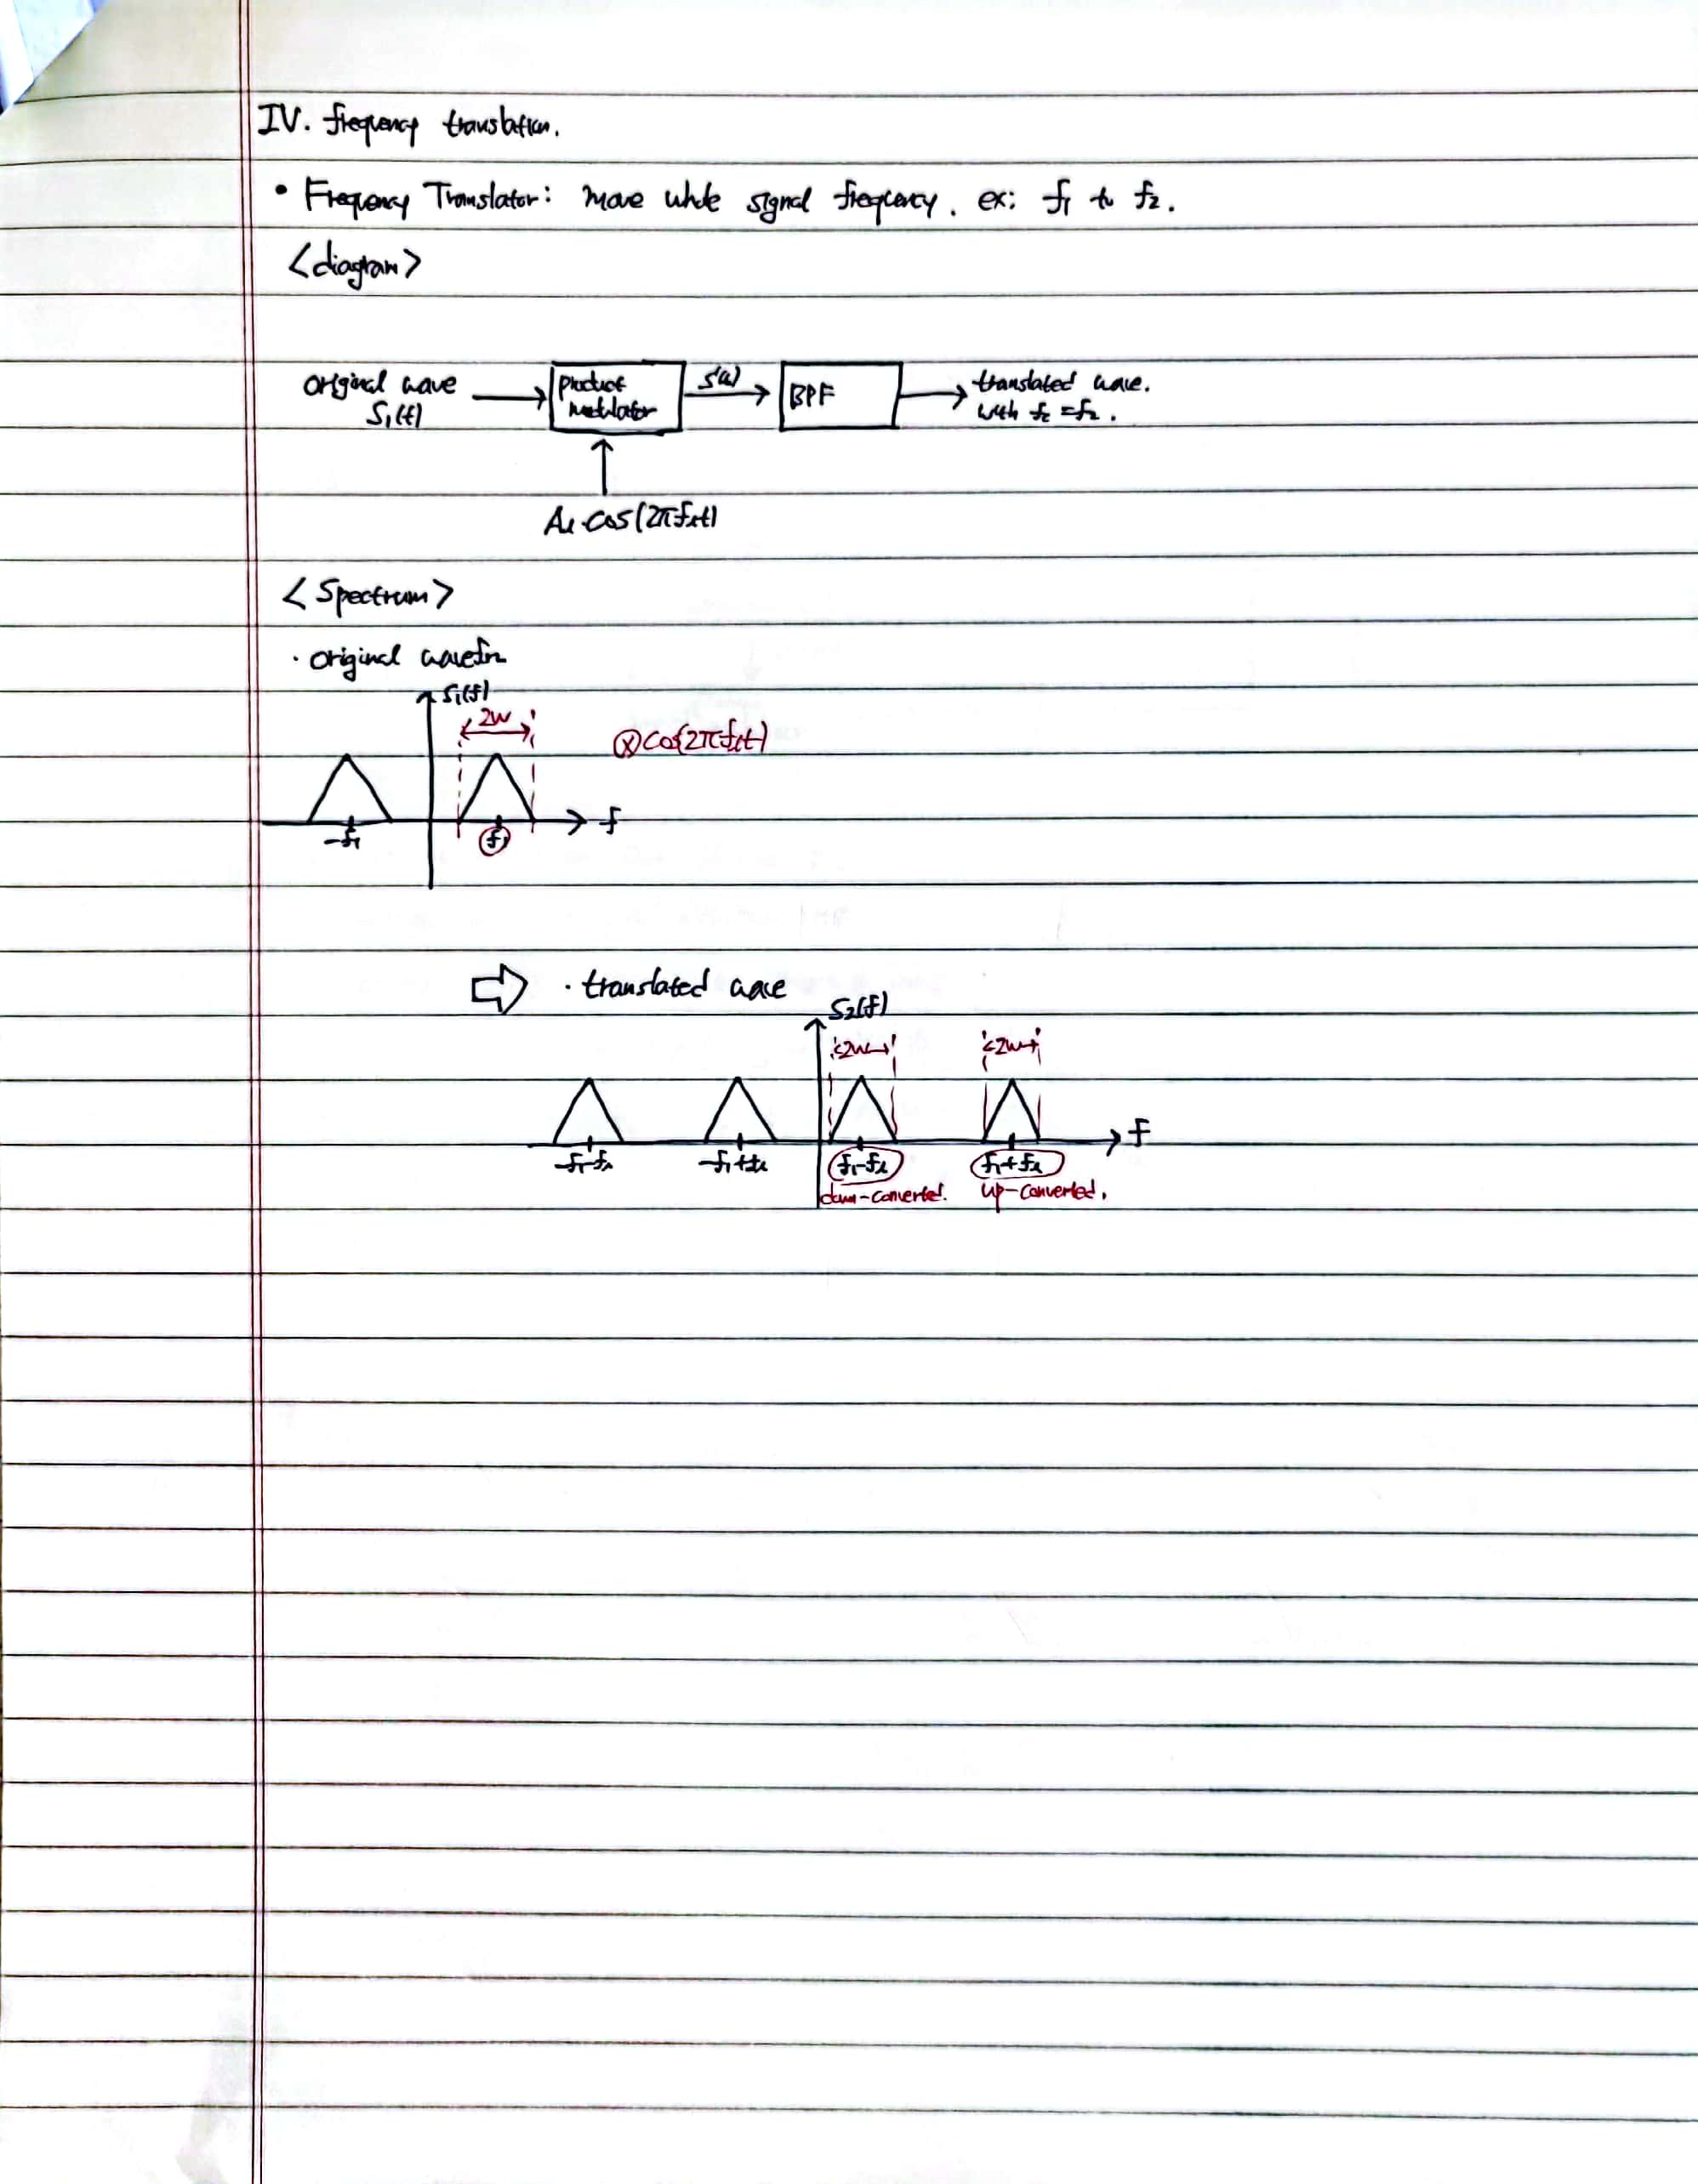 IV. frequency translation.
• Frequency Translator: Move whole signal frequency. ex: f₁ to f₂.
<diagram>
original wave
S₁(t)
product
modulator
S'(t)
BPF
translated wave.
with fc = f₂.
Aℓ·cos(2πfℓt)
<Spectrum>
· original wavefm
S₁(f)
2W
⊗cos(2πfℓt)
-f₁ f₁ f
⇨ · translated wave
S₂(f)
2W 2W
-f₁-fℓ -f₁+fℓ f₁-fℓ f₁+fℓ f
down-converted. up-converted.